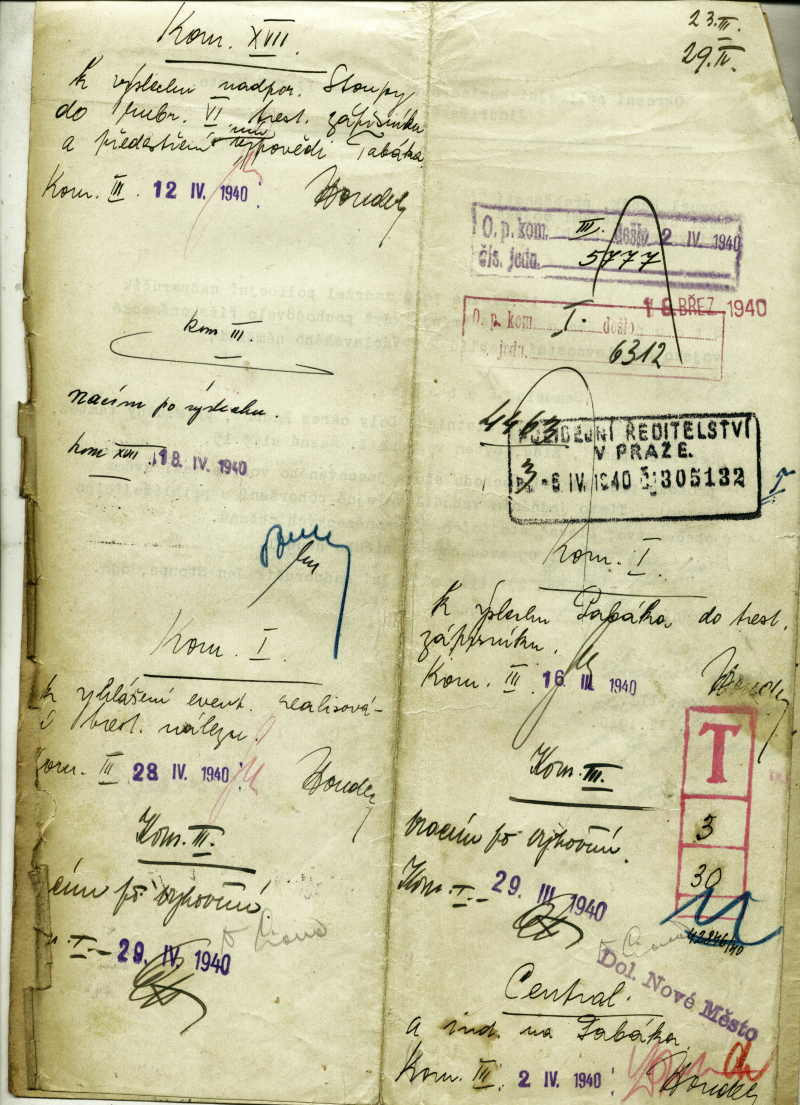 Kom. XVII.
k výslechu nadpor. Stoupy
do rubr. VI trest. zápisníku
a předestření mu výpovědi Tabáka
Kom. III. 12 IV. 1940
kom III.
vracím po výslechu.
kom XVII 18. IV. 1940
Kom. I.
k vyhlášení event. realisová-
í trest. nálezu.
Kom. III 28 IV. 1940
Kom. III.
cím po vyhovění.
I. 29. IV. 1940
23. III.
29. IV.
O. p. kom. III. došlo 2 IV. 1940
čís. jedn. 5777
18. BŘEZ. 1940
O. p. kom. I. došlo
jedn. 6312
4463
POLICEJNÍ ŘEDITELSTVÍ
V PRAZE.
3 -6 IV. 1940 Čj 305132
I
Kom. I.
k výslechu Tabáka do trest.
zápisníku.
Kom. III. 16 III. 1940
T
3
30
Kom. III.
vracím po vyhovění.
Kom. I. 29 III 1940
42846/40
Dol. Nové Město
Central.
a ind. na Tabáka
Kom. III. 2 IV. 1940